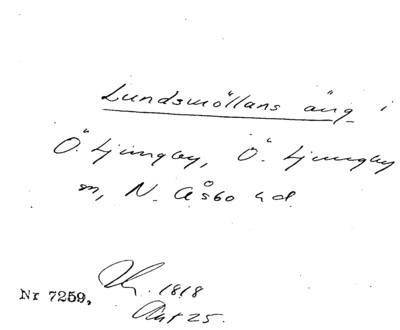 Lundsmöllans äng i
Ö. Ljungby, Ö. Ljungby
sn, N. Åsbo hd
1818
Nr 7259,
Akt 25.